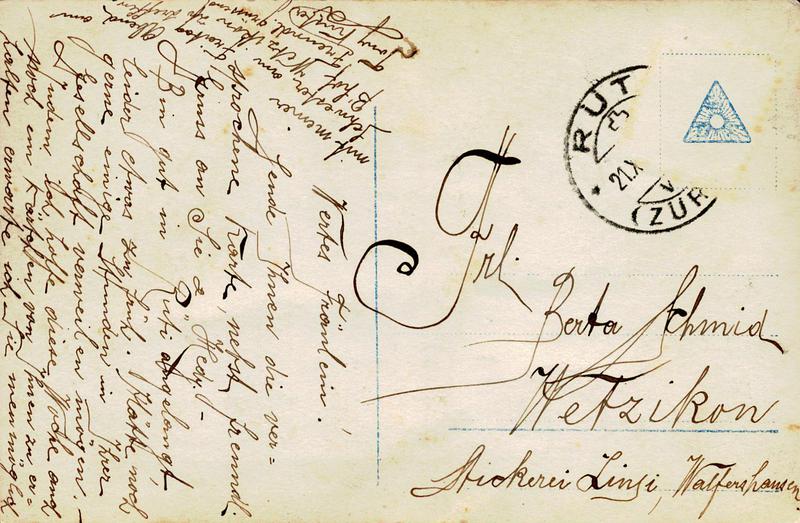 Wertes Fräulein!
Sende Ihnen die ver=
sprochene Karte, nebst freundl.
Gruss an Sie & "Hedy"-
Bin gut in Rüti angelangt,
leider etwas zu früh. Hätte noch
gerne einige Stunden in Ihrer
Gesellschaft verweilen mögen. -
Indem ich hoffe diese Woche noch
ein Kärtchen von Ihnen zu er=
halten erwarte ich Sie
mit meiner
Schwester am Freitag Abend am
Bhf. Wetzikon zu treffen
Freundl. grüssend
Frl.
Berta Schmid
Wetzikon
Stickerei Linsi, Walfershausen
RUT
21.X
(ZÜR